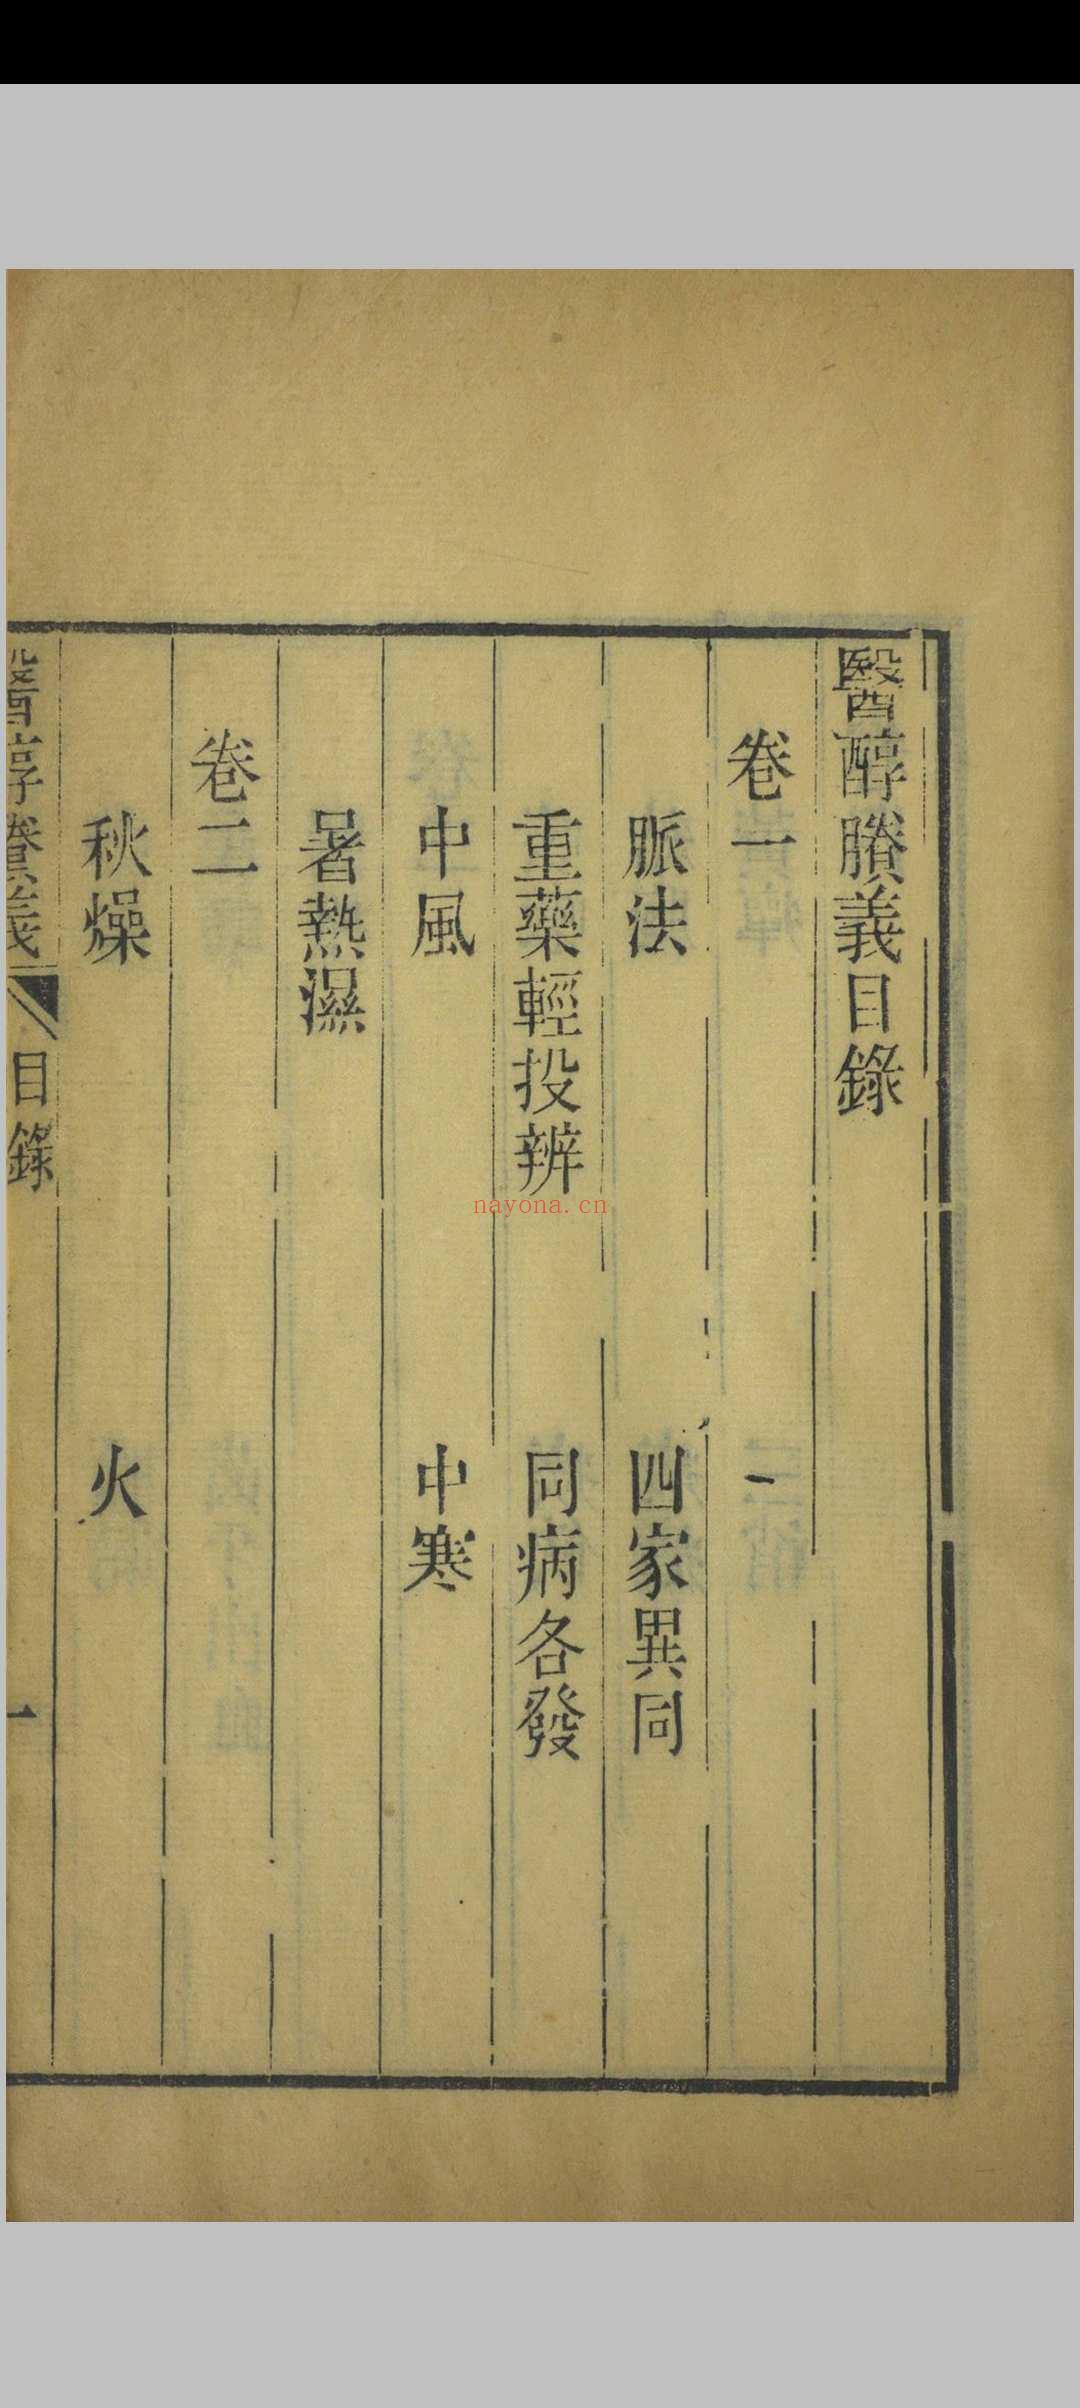 醫醇賸義目錄
卷一
脈法　四家異同
重藥輕投辨　同病各發
中風　中寒
暑熱濕
卷二
秋燥　火
醫醇賸義　目錄　一
nayona.cn